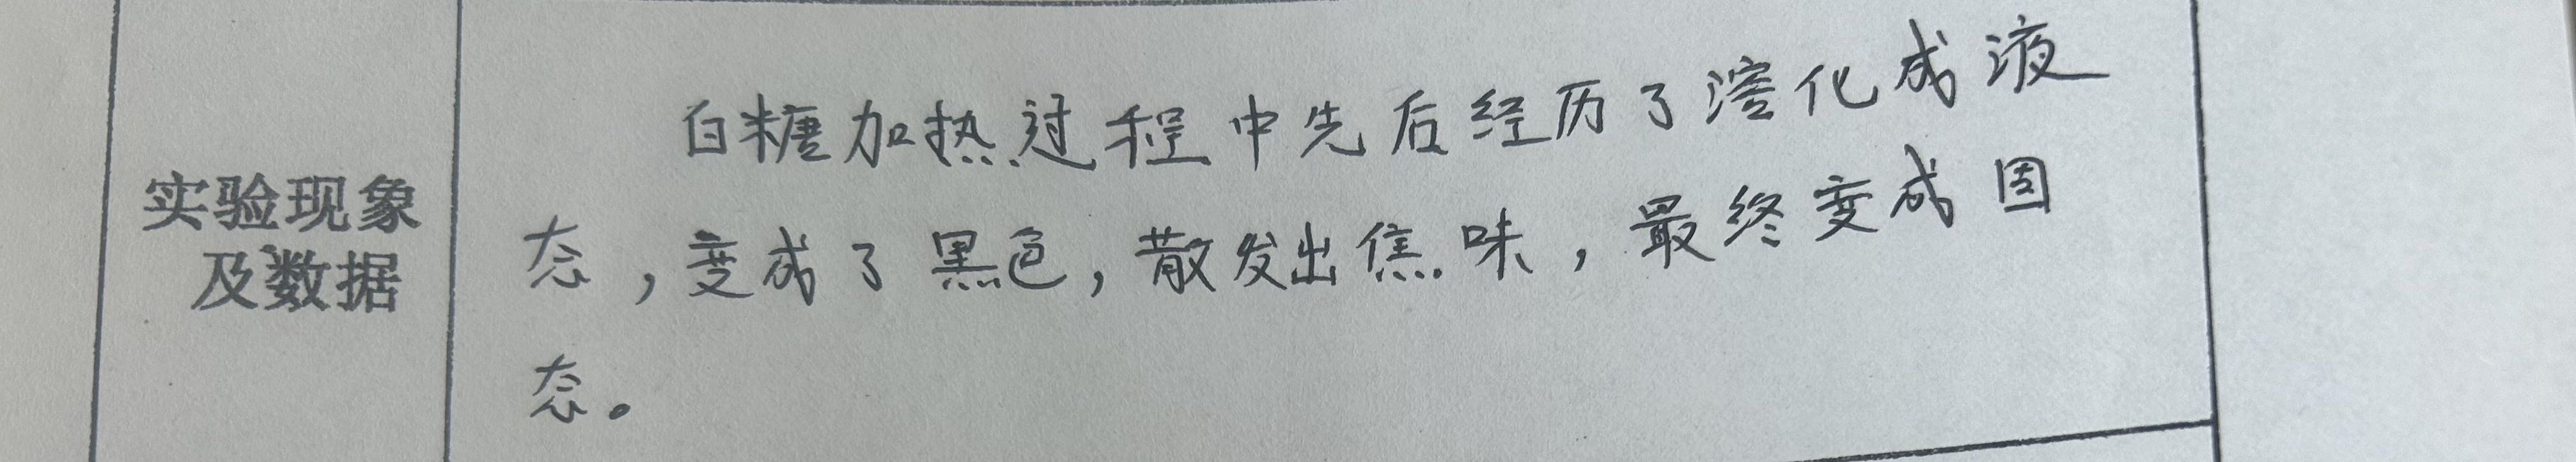 实验现象
及数据
白糖加热过程中先后经历了溶化成液
态，变成了黑色，散发出焦味，最终变成固
态。